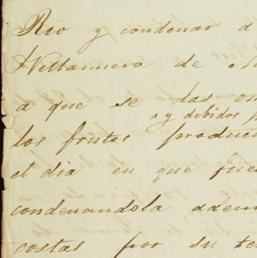 Rio y condenar a
Villanueva de
a que se las en
y debidos p
los frutos produci
el dia en que fue
condenandola adem
costas por su te